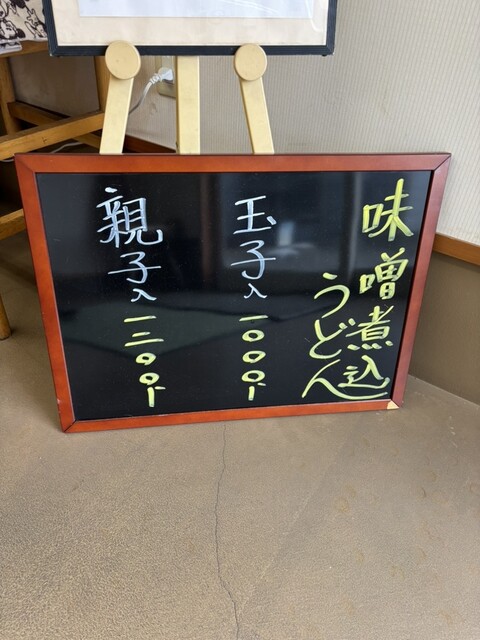 味噌煮込
うどん
玉子入一〇〇〇円
親子入一二〇〇円